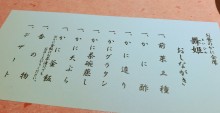 舞姫
おしながき
一、前菜三種
一、かに酢
一、かに造り
一、かにグラタン
一、かに茶碗蒸し
一、かに天ぷら
一、かに釜飯
一、香の物
一、デザート